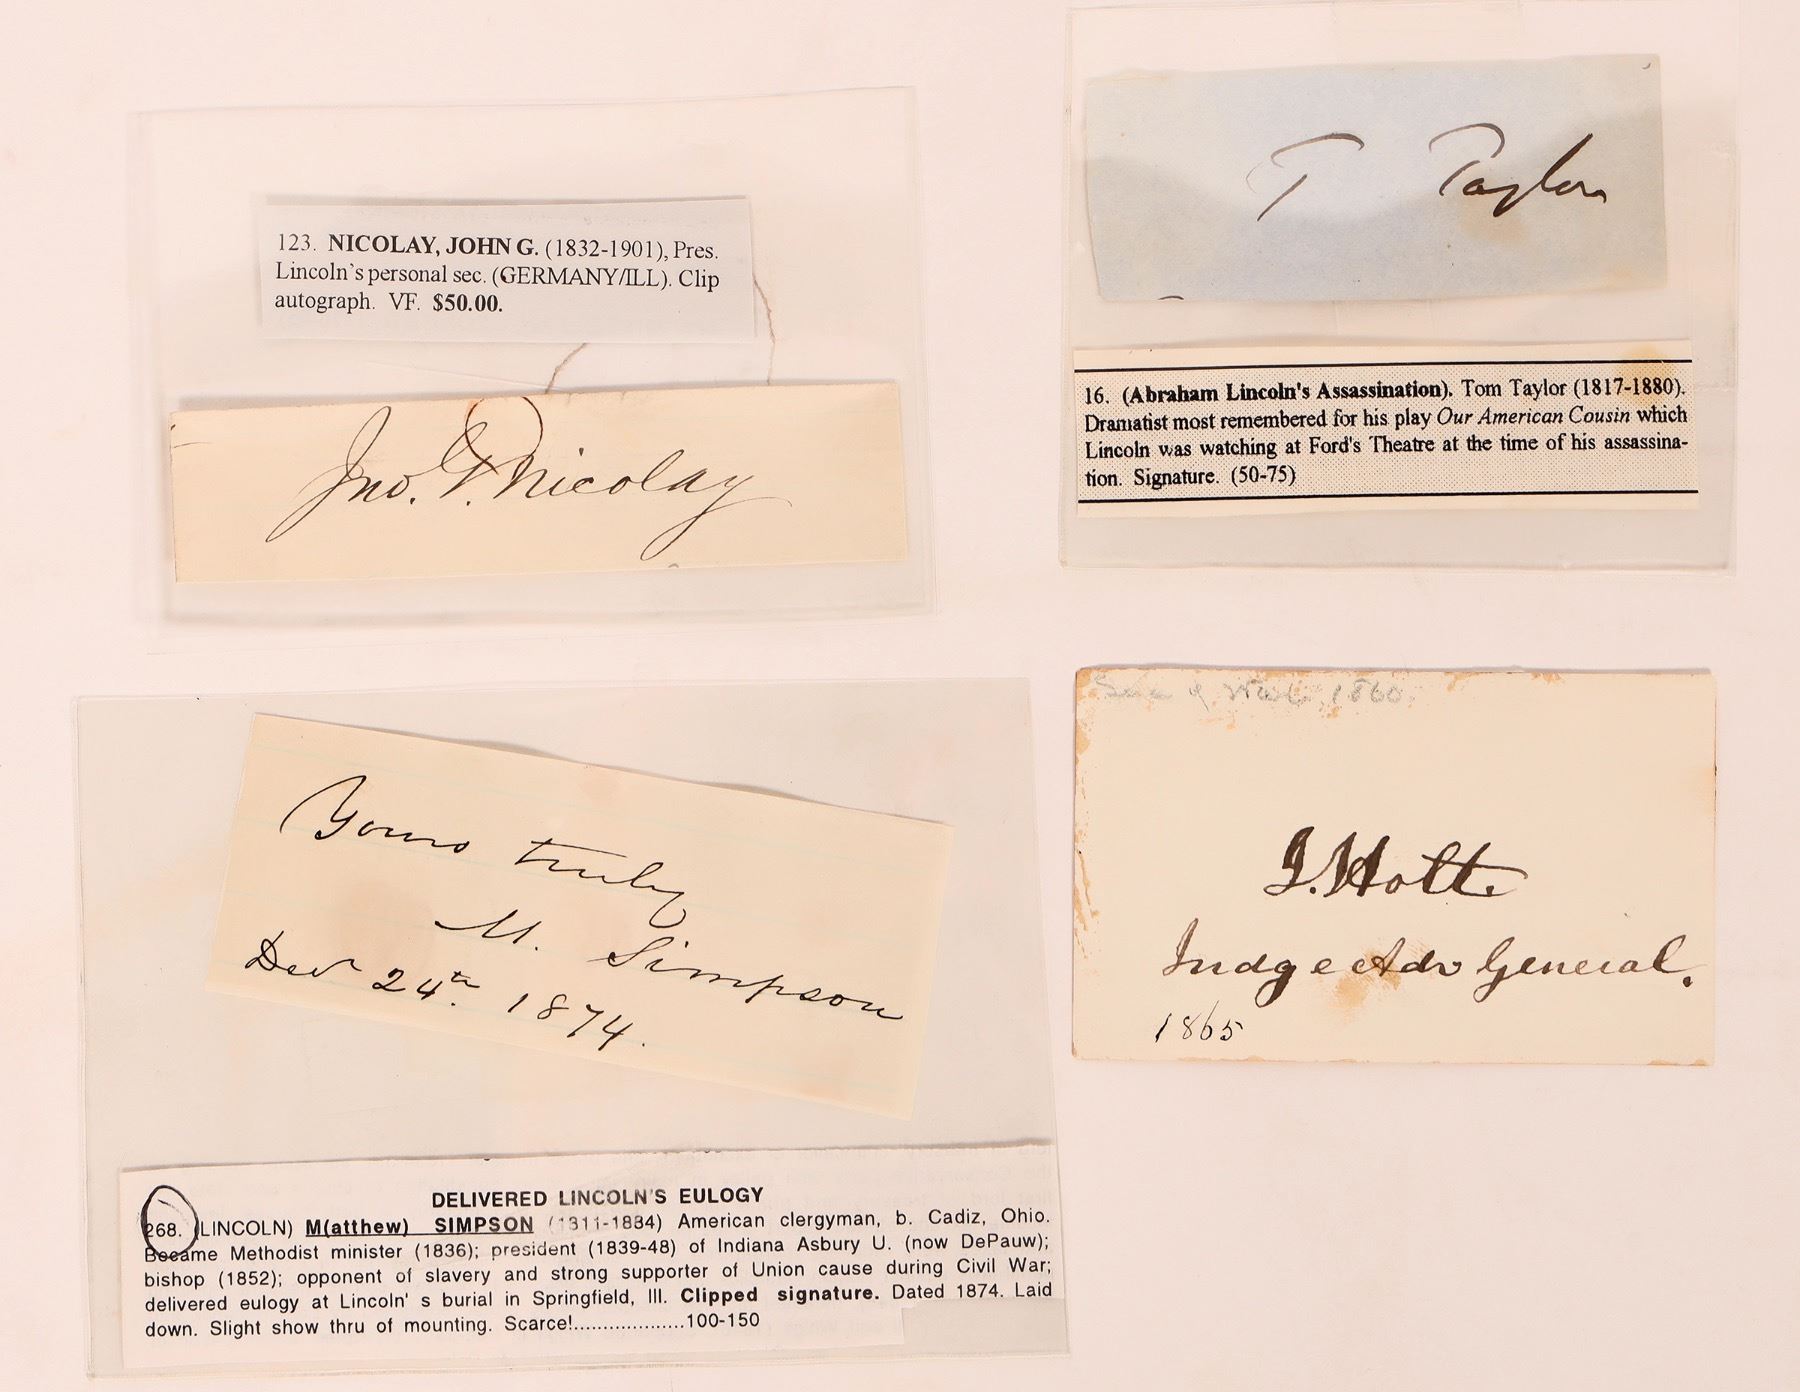 123. NICOLAY, JOHN G. (1832-1901), Pres.
Lincoln's personal sec. (GERMANY/ILL). Clip
autograph. VF. $50.00.
Jno. G. Nicolay
T Taylor
16. (Abraham Lincoln's Assassination). Tom Taylor (1817-1880).
Dramatist most remembered for his play Our American Cousin which
Lincoln was watching at Ford's Theatre at the time of his assassina-
tion. Signature. (50-75)
Yours truly
M. Simpson
Dec 24th 1874.
DELIVERED LINCOLN'S EULOGY
268. (LINCOLN) M(atthew) SIMPSON (1811-1884) American clergyman, b. Cadiz, Ohio.
Became Methodist minister (1836); president (1839-48) of Indiana Asbury U. (now DePauw);
bishop (1852); opponent of slavery and strong supporter of Union cause during Civil War;
delivered eulogy at Lincoln' s burial in Springfield, Ill. Clipped signature. Dated 1874. Laid
down. Slight show thru of mounting. Scarce!...................100-150
Sec of War 1860
J. Holt.
Judge Adv General.
1865